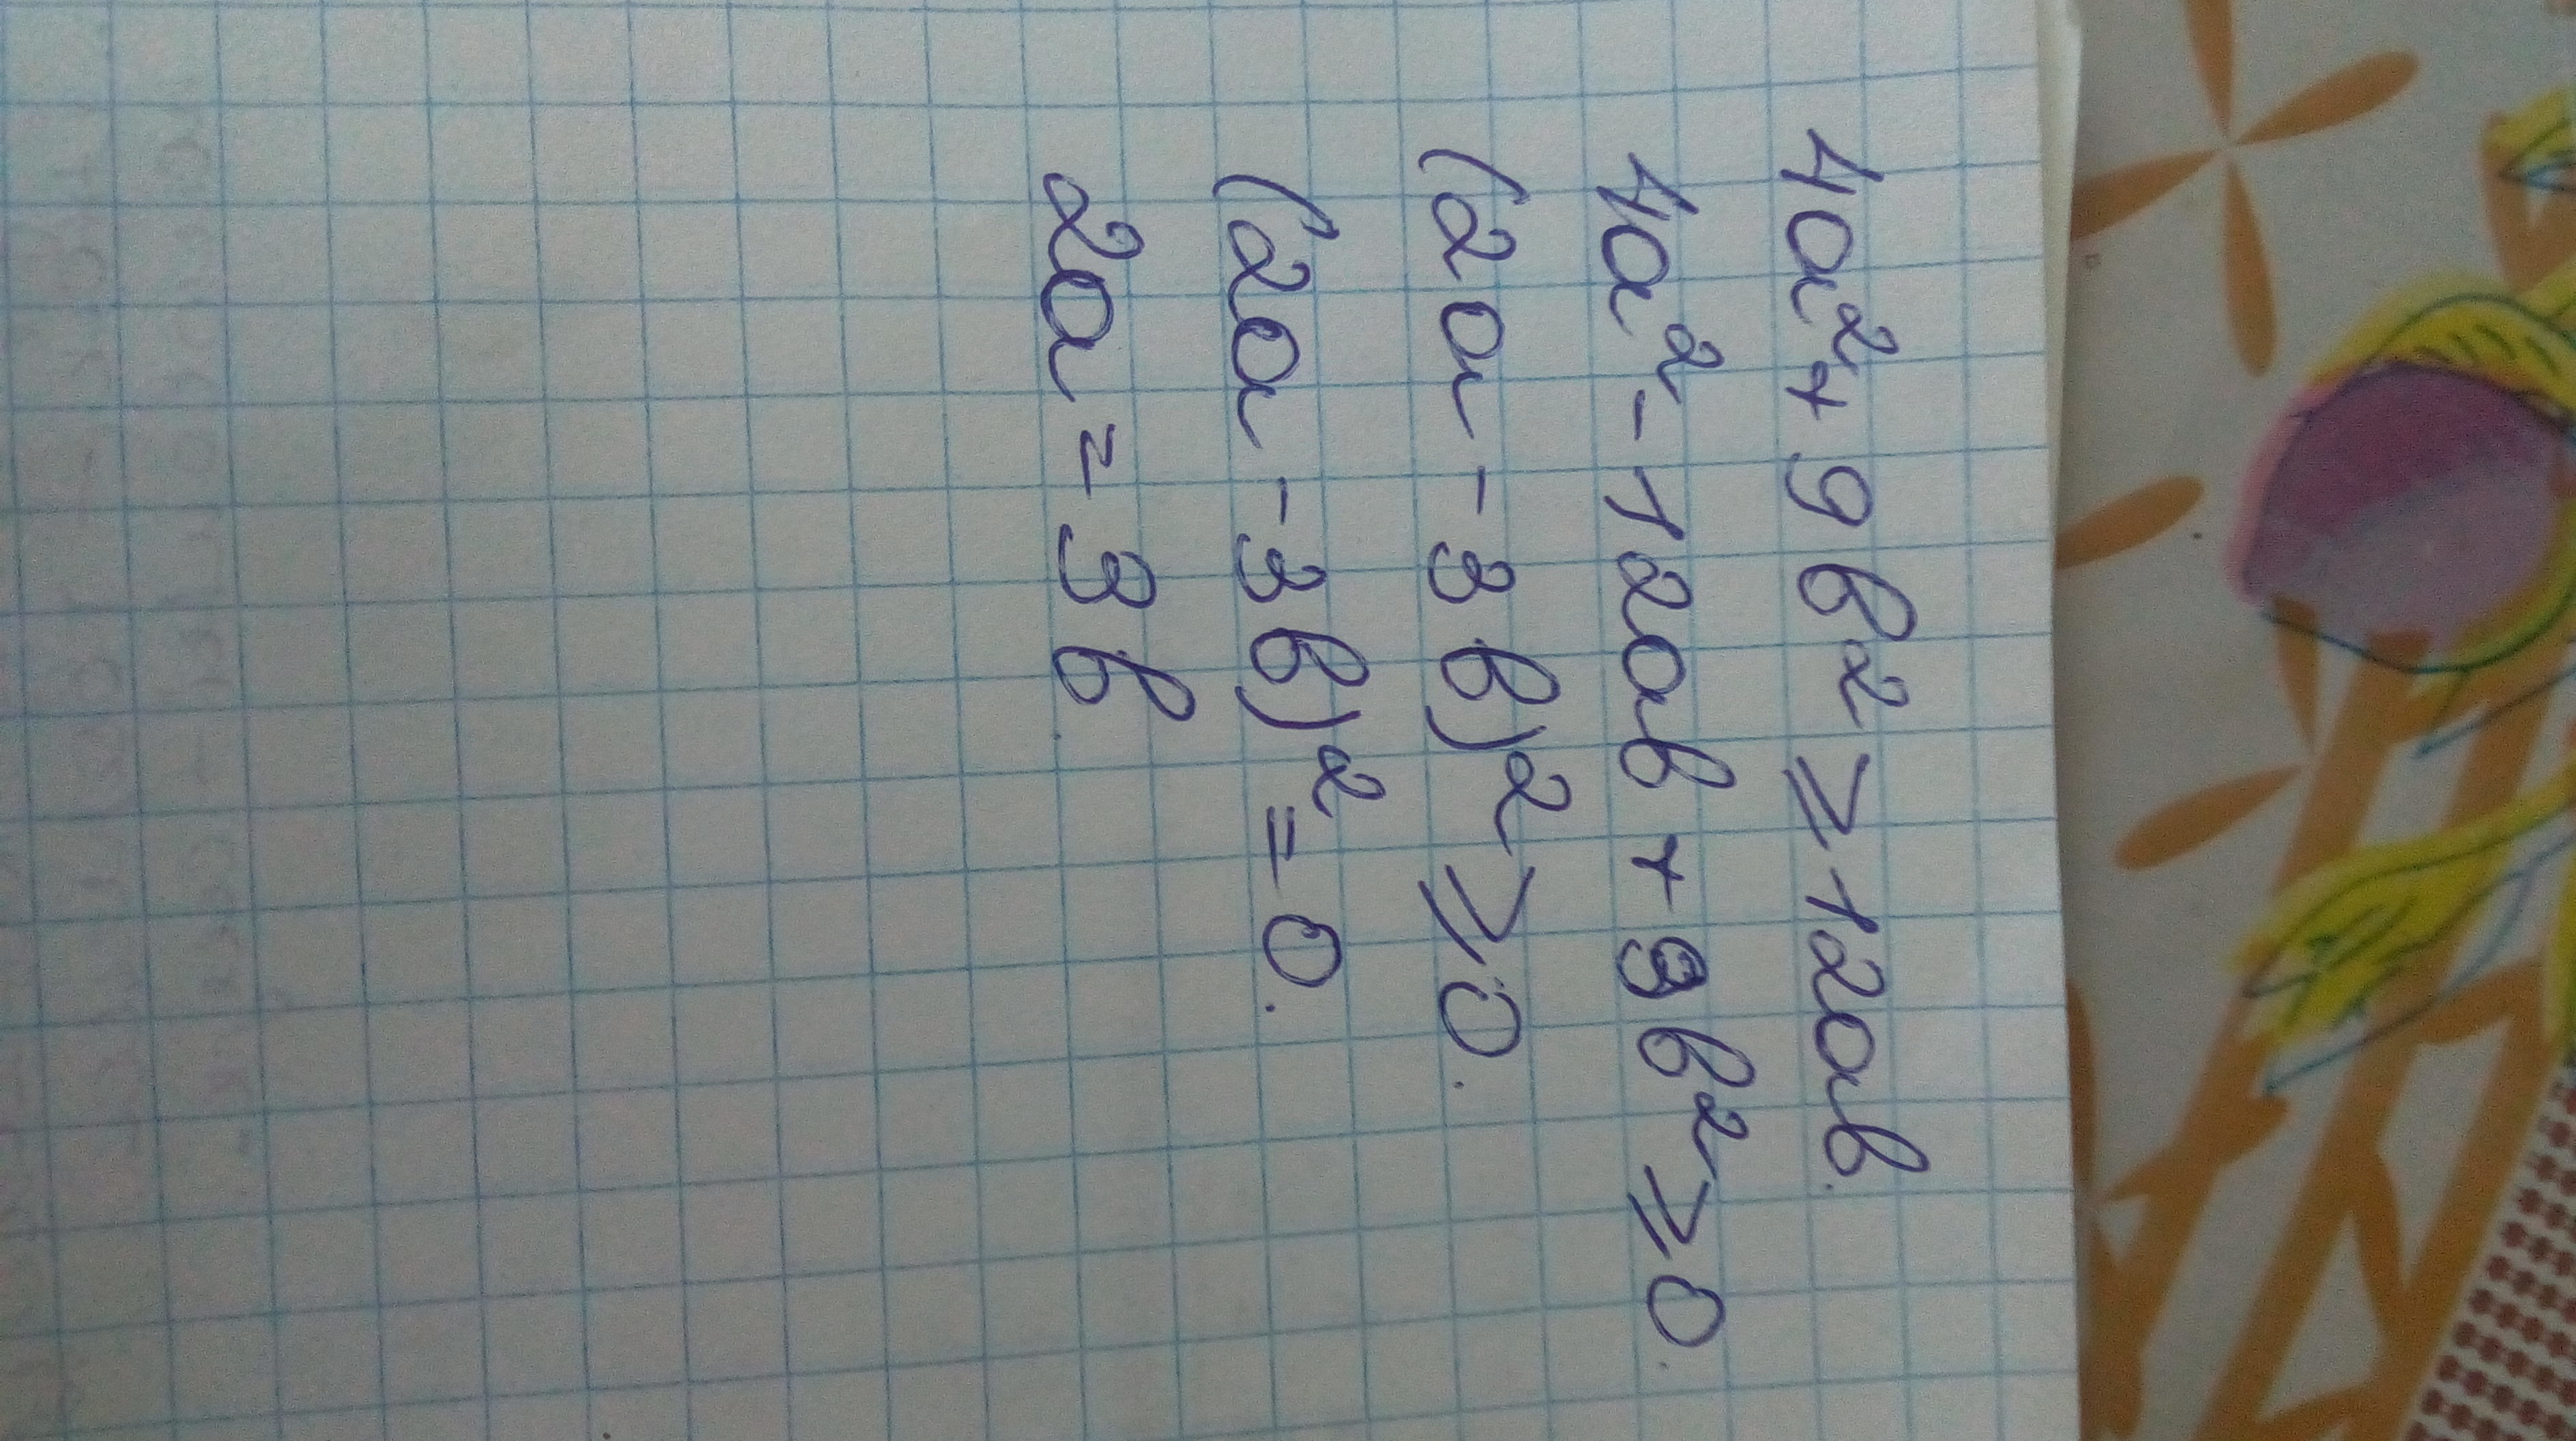 4a² + 9b² ⩾ 12ab.
4a² - 12ab + 9b² ⩾ 0.
(2a - 3b)² ⩾ 0.
(2a - 3b)² = 0.
2a = 3b